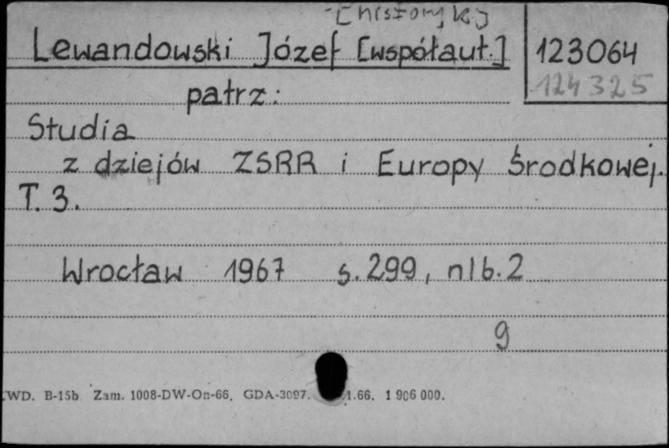 [historyk]
Lewandowski Józef [współaut.] 123064
124325
patrz:
Studia
z dziejów ZSRR i Europy Środkowej.
T. 3.
Wrocław 1967 s. 299, nlb. 2
9
WD. B-15b Zam. 1008-DW-On-66. GDA-3097. 1.66. 1 906 000.